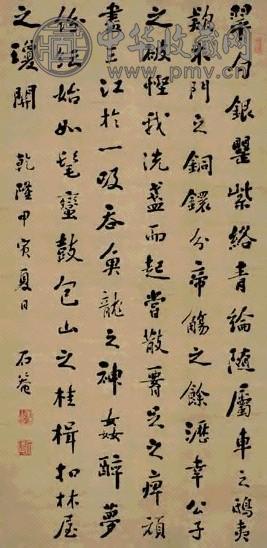 中华收藏网
www.pmv.cn
翠勺銀罌紫絡青綸隨屬車之鴟夷
款木門之銅鐶分帝觴之餘瀝幸公子
之破慳我洗盞而起嘗散腰足之痺頑
盡三江於一吸吞魚龍之神姦醉夢
紛紜始如髦蠻鼓包山之桂楫扣林屋
之瓊關 乾隆甲寅夏日 石菴